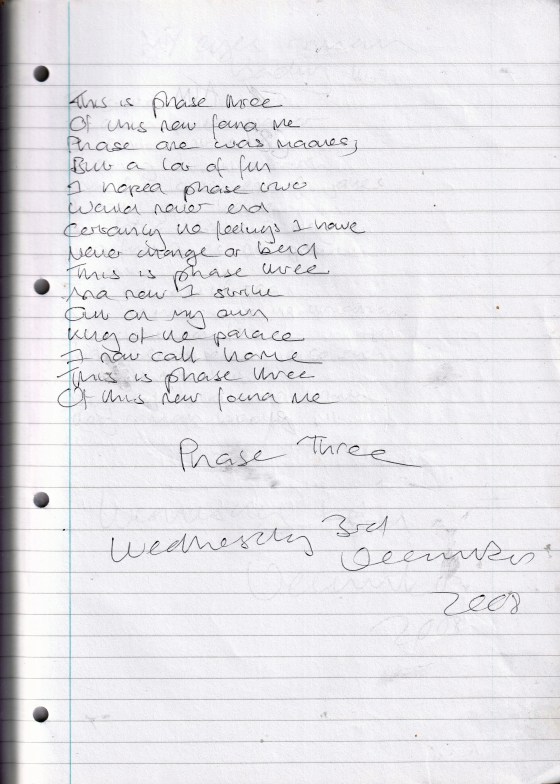 This is phase three
Of this new found me
Phase one was madness
But a lot of fun
I hoped phase two
Would never end
Certainly the feelings I have
Never change or bend
This is phase three
And now I strike
Out on my own
King of the palace
I now call home
This is phase three
Of this new found me
Phase Three
Wednesday 3rd
December
2008